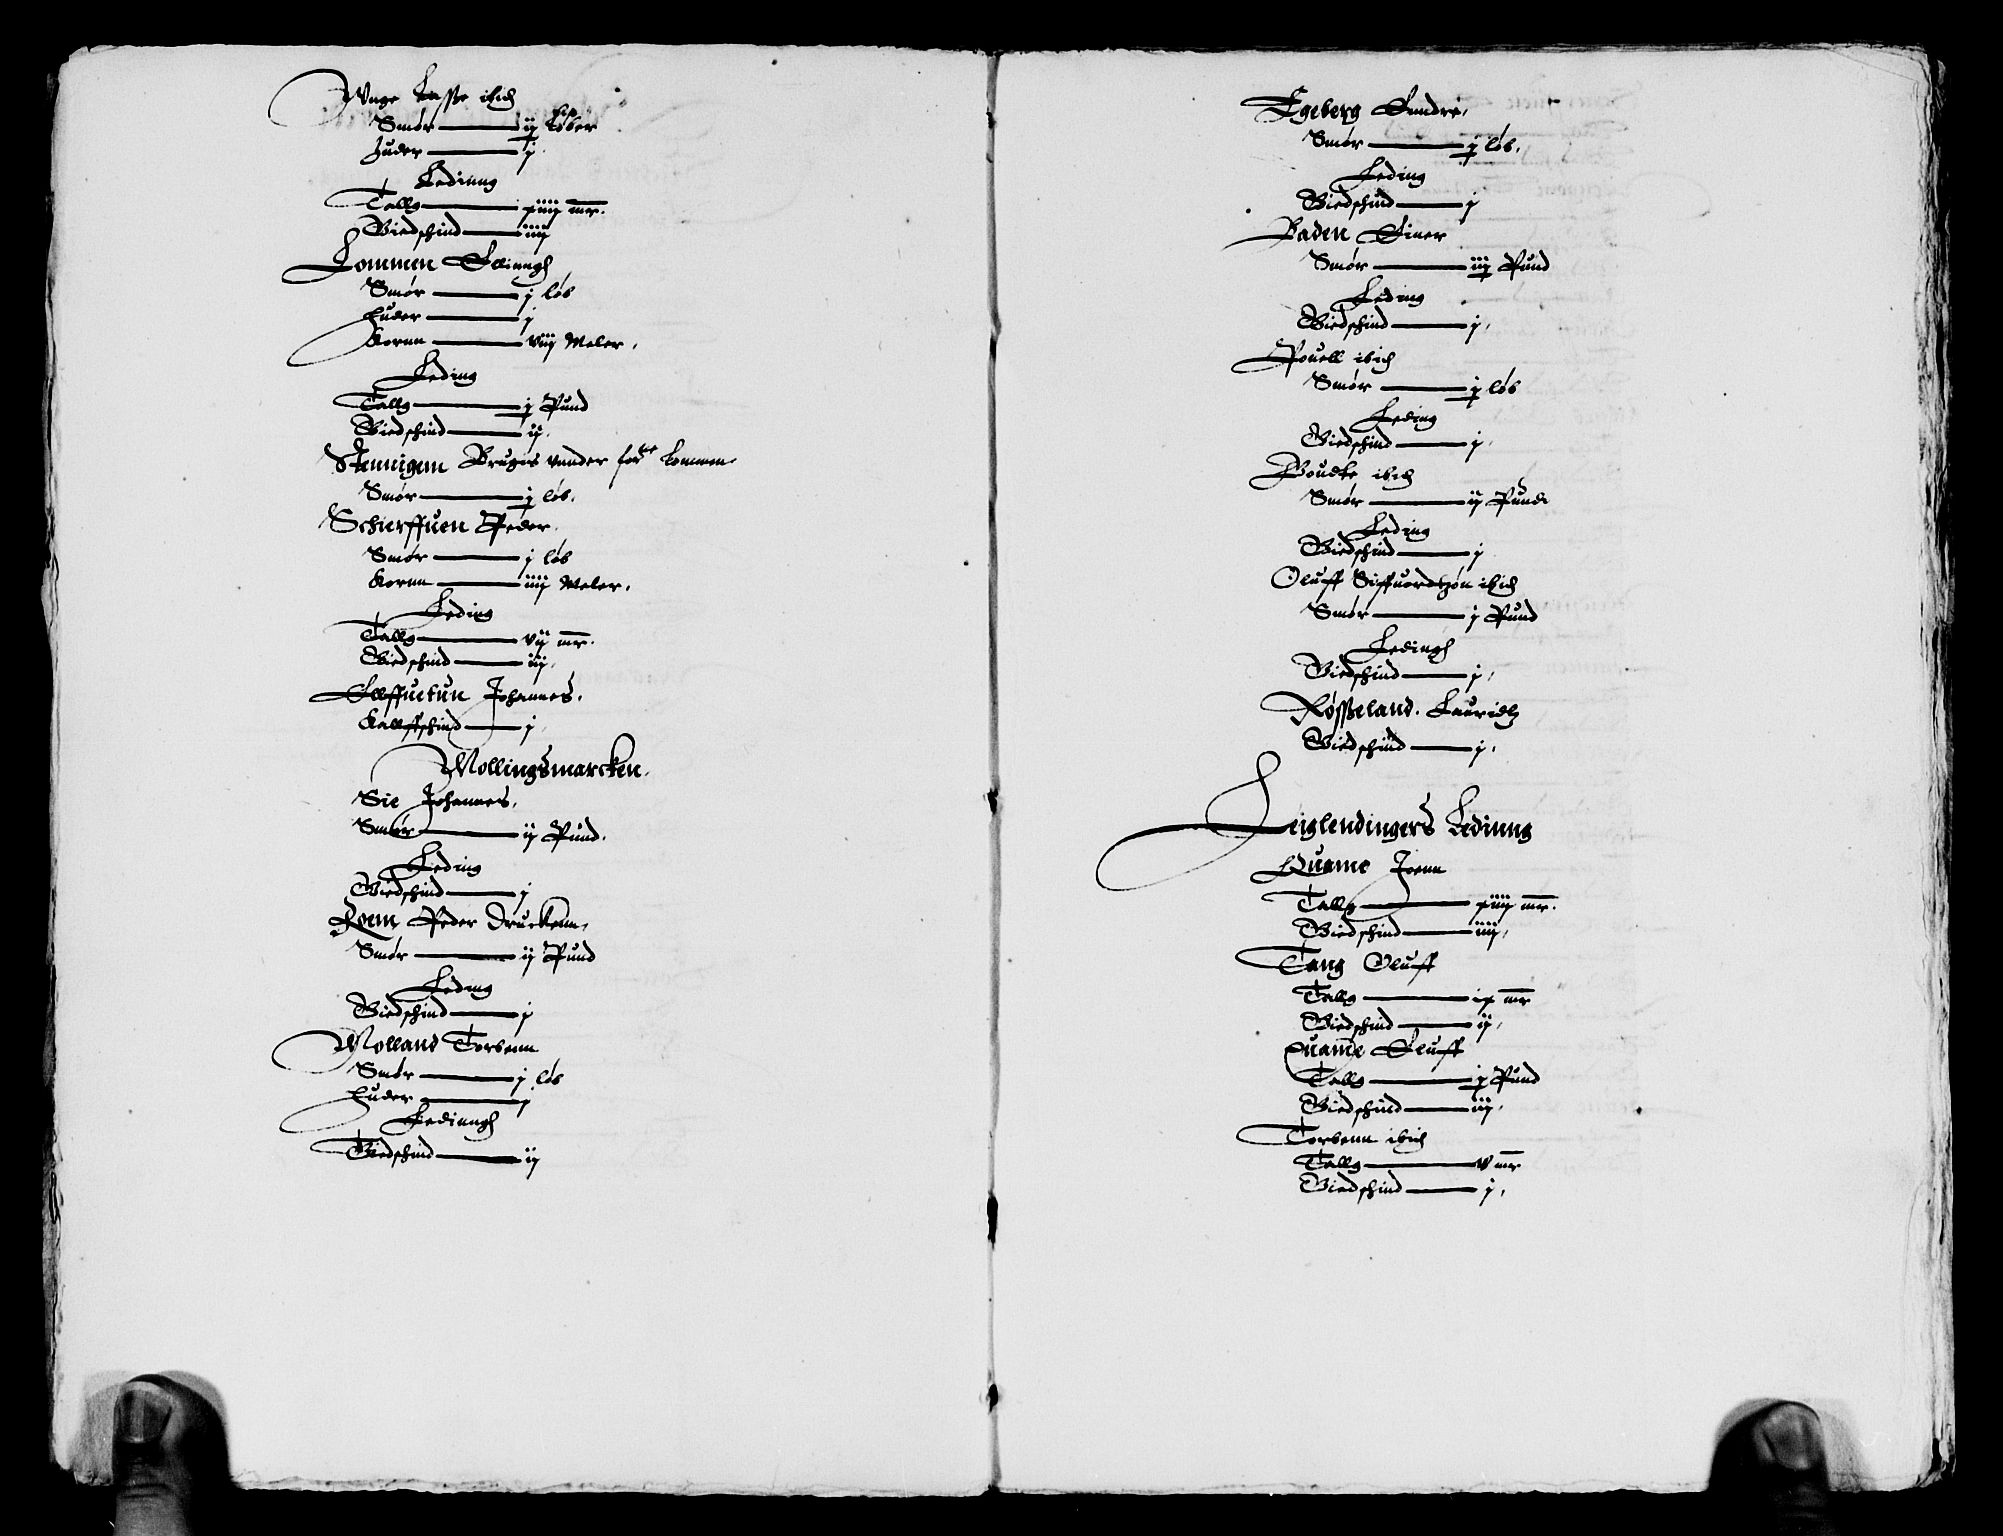 Unge Lasse ibid
Smør — ij løber
Huder — j
Lediung
Tallg — xiiij mr.
Biedschind — iiij
Lommen Ellinngh
Smør — j løb
Huder — j
Kornn — viij Meler,
Leding
Tallg — j Pund
Biedschind — ij.
Stennigem Bruges vnnder forne Lommen
Smør — j løb.
Schierffuen Peder.
Smør — j løb
Kornn — iiij Meler,
Leding
Tallg — vij mr.
Biedschind — iij,
Ellffuetun Johannes.
Kallffschind — j,
Mollingsmarcken.
Sie Johannes,
Smør — ij Pund.
Leding
Biedschind — j
Hoem Peder Druckenn,
Smør — ij Pund
Leding
Biedschind — j
Molland Torbenn
Smør — j løb
Huder — j
Ledinngh
Biedschind — ij
Egeberg Sundre,
Smør — j løb.
Leding
Biedschind — j
Baden Einer
Smør — iij Pund
Leding
Biedschind — j,
Pouell ibid
Smør — j løb
Leding
Biedschind — j,
ibid
Smør — ij Pund
Leding
Biedschind — j
Oluff Siffuordtzøn ibid
Smør — j Pund
Ledingh
Biedschind — j,
Røsseland. Lauridtz
Biedschind — j,
Leiglendingers Lediung
Quame Joenn
Tallg — xiiij mr.
Biedschind — iiij,
Tang Oluff
Tallg — ix mr
Biedschind — ij,
Quame Eluff
Tallg — j Pund
Biedschind — iij,
Torbenn ibid
Tallg — v mr
Biedschind — j,